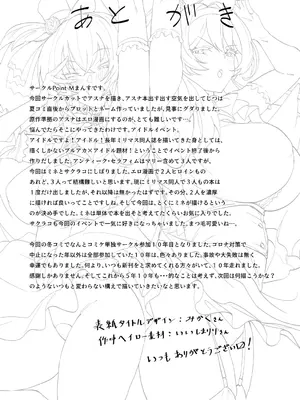 あとがき
サークルPoint Mまんすです。
今回サークルカットでアスナを描き、アスナ本出す出す空気を出してじつは
夏コミ直後からプロットとネーム作っていましたが、見事にグダりました。
原作準拠のアスナはエロ漫画にするのが、とても難しいです…。
悩んでたらそこにやってきたわけです。アイドルイベント。
アイドルですよ！アイドル！長年ミリマス同人誌を描いてきた身としては、
描くしかないブルアカ×アイドル題材！ということでイベント終了後から
作りだしました。アンティーク・セラフィムはマリー含めて3人ですが、
今回はミネとサクラコにしぼりました。エロ漫画で2人ヒロインもの
あれど、3人って結構難しいと思います。現にミリマス同人で3人もの本は
1度だけ出しましたが、それ以降は無かったはずです。その分、2人を濃厚
に描ければ良いってことですしね。そして今回は、とくにミネが描けるという
のが決め手でした。ミネは単体で本を出そと考えてたくらいお気に入りでした。
サクラコも今回のイベントで一気に好きになっちゃいました。まつ毛可愛いね…。
今回の冬コミでなんとコミケ単独サークル参加10年目となりました。コロナ対策で
中止になった年以外は全部参加していた10年、色々ありました。事故や大失敗は無く
幸運でもありました。何より、いつも新刊を求めてくれる方々がいて、10年走れました。
感謝しかありません。そしてこれから5年10年も…的なことは考えず、次回は何描こうかな？
のようないつもと変わらない構えで描いていきたいなと思います。
表紙タイトルデザイン：みかくさん
いつもありがとうございます！